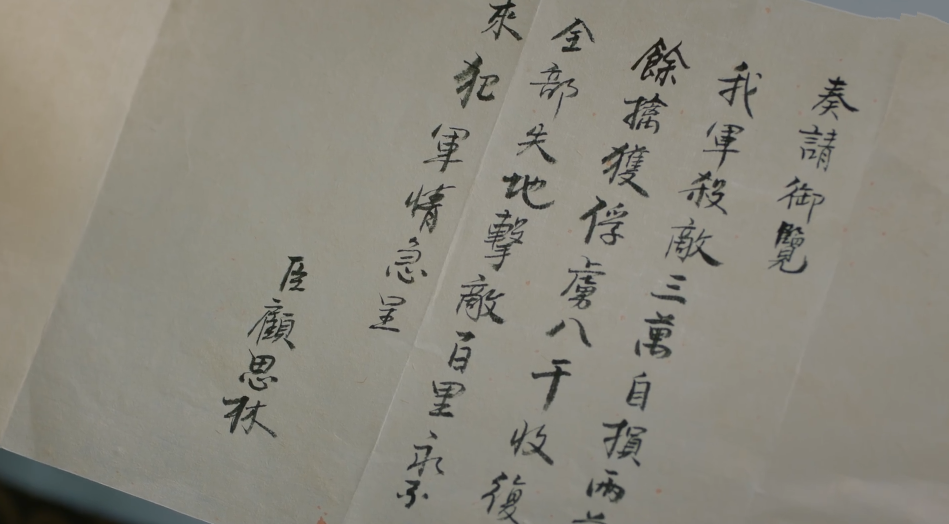 奏請御覽
我軍殺敵三萬自損兩
餘擒獲俘虜八千收復
全部失地擊敵百里永不
來犯軍情急呈
臣顧思林